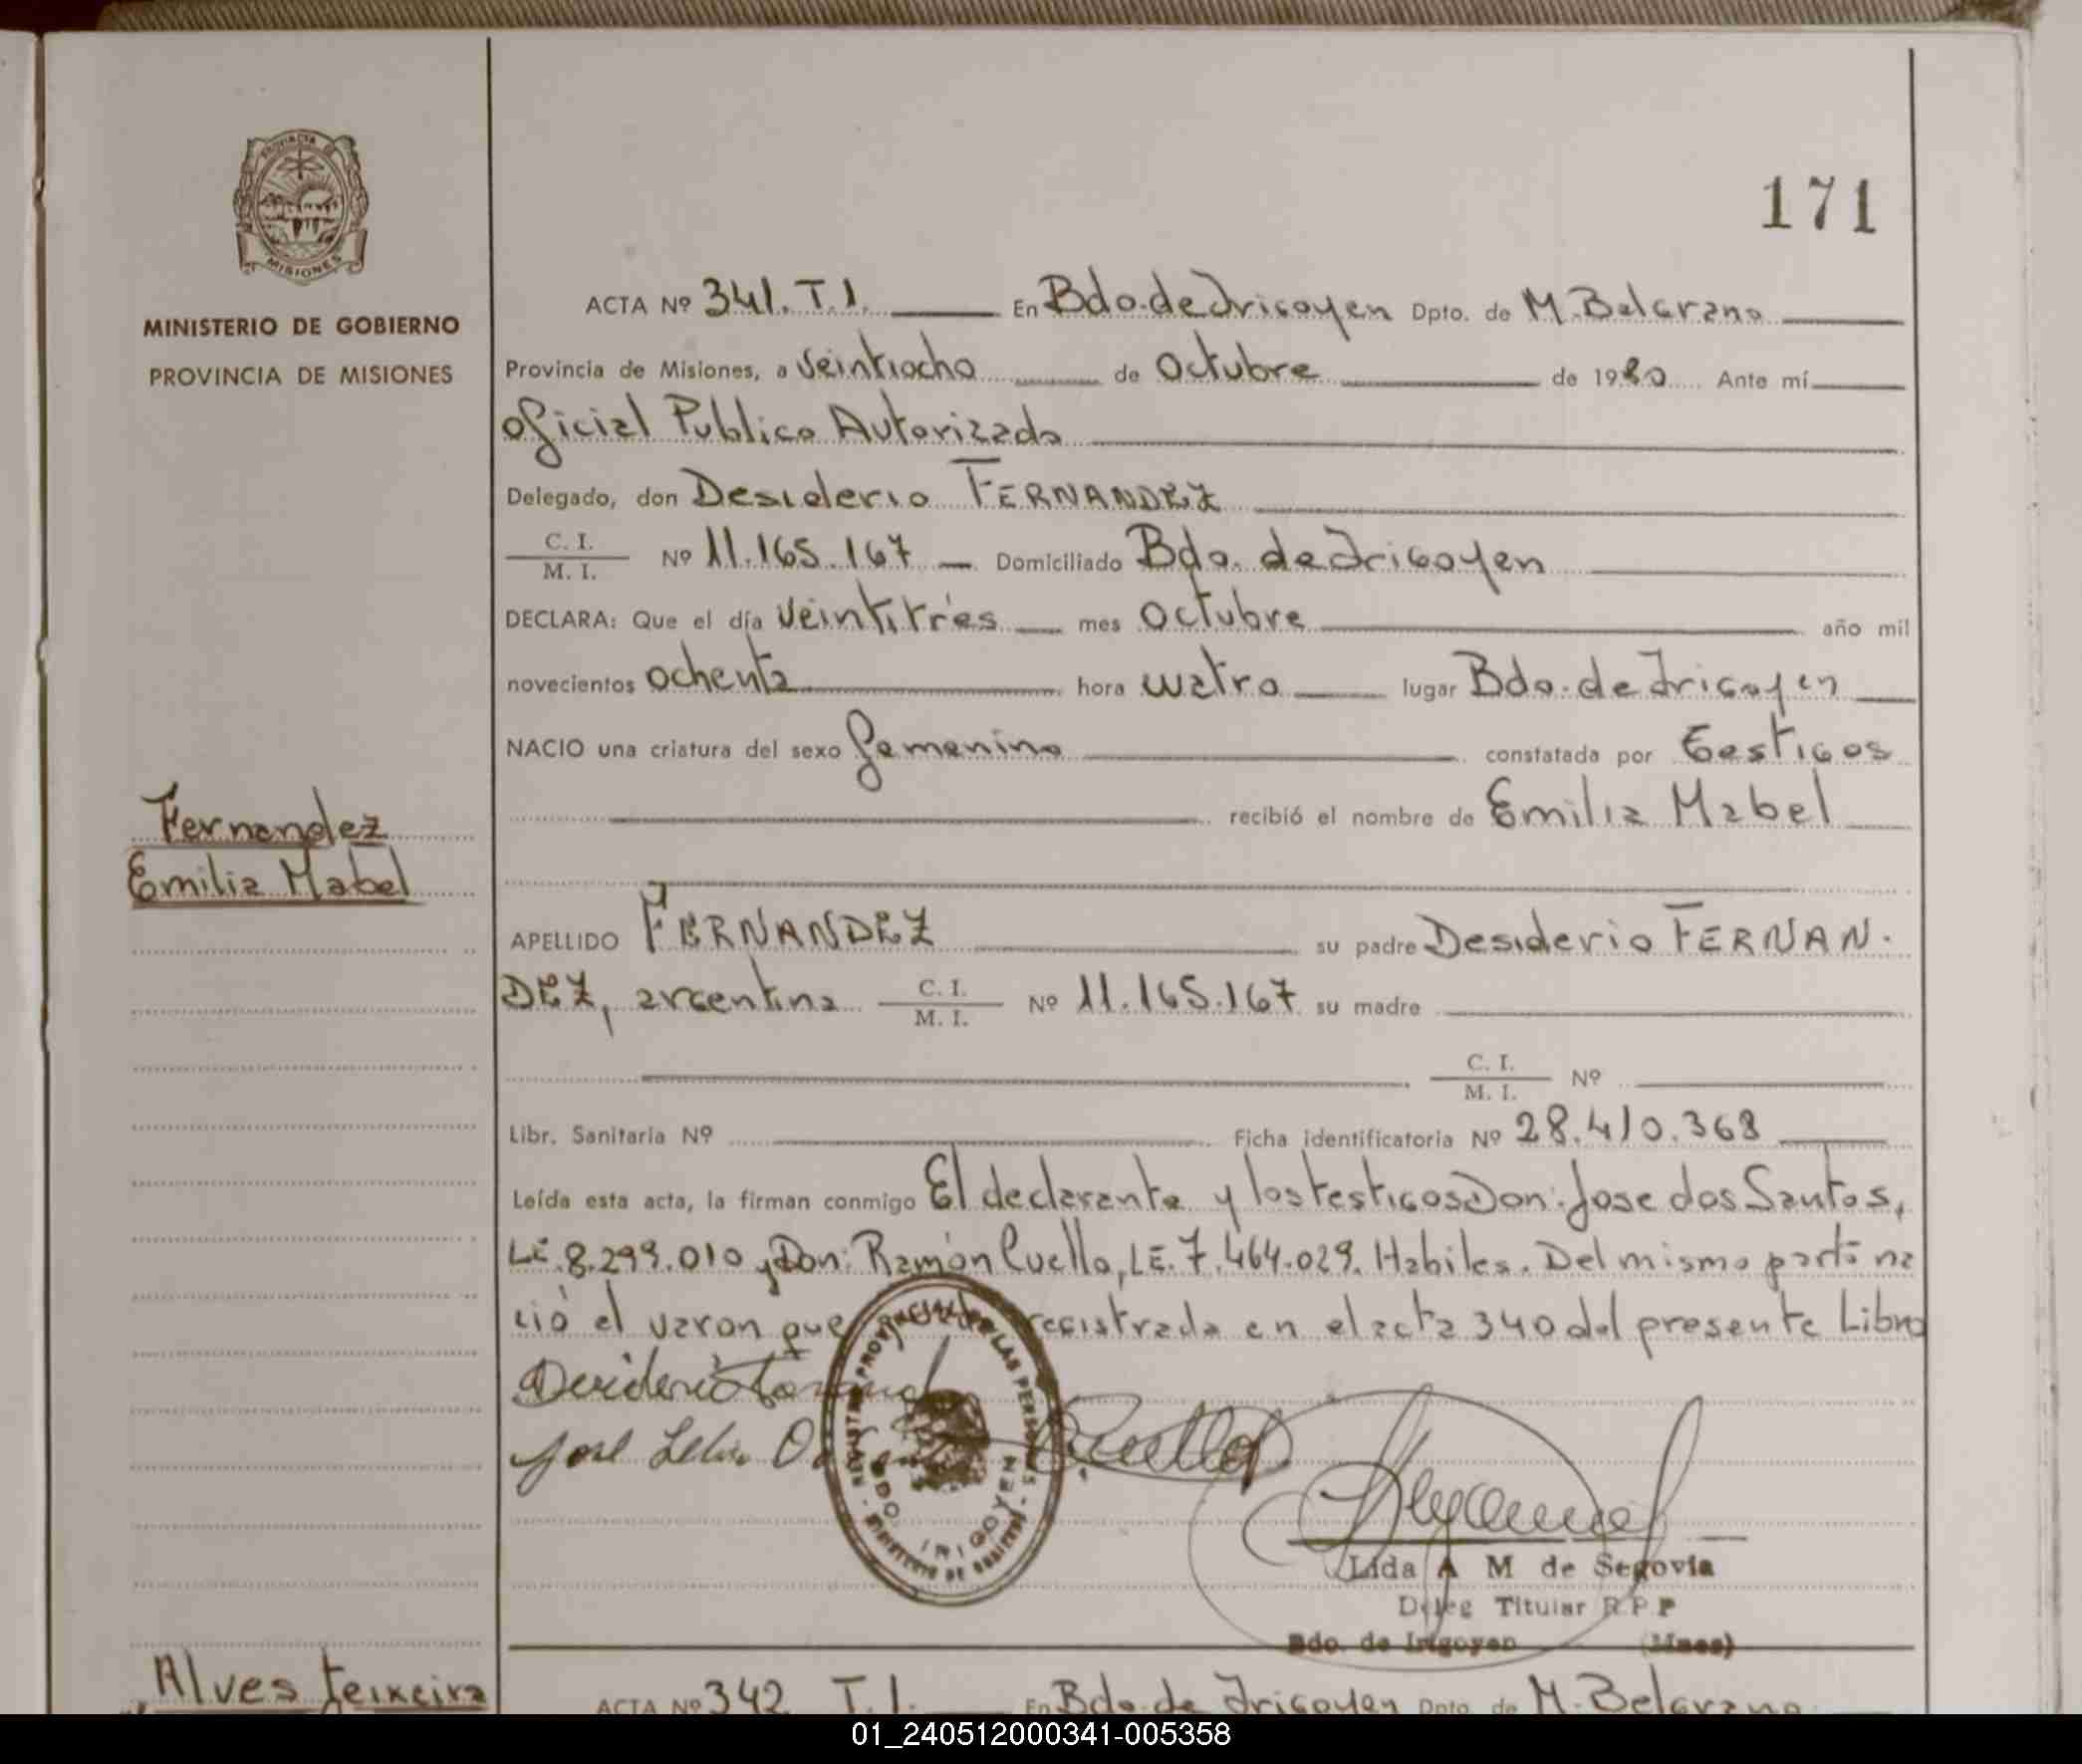 171
MINISTERIO DE GOBIERNO
PROVINCIA DE MISIONES
PROVINCIA DE
MISIONES
ACTA Nº 341. T. I. En Bdo. de Irigoyen Dpto. de M. Belgrano
Provincia de Misiones, a veintiocho de Octubre de 1980 Ante mí
oficial Publico Autorizado
Delegado, don Desiderio FERNANDEZ
C. I. / M. I. Nº 11.165.167 Domiciliado Bdo. de Irigoyen
DECLARA: Que el día veintitrés mes Octubre año mil
novecientos ochenta hora cuatro lugar Bdo. de Irigoyen
NACIO una criatura del sexo femenino constatada por testigos
recibió el nombre de Emilia Mabel
Fernandez
Emilia Mabel
APELLIDO FERNANDEZ su padre Desiderio FERNAN-
DEZ, argentina C. I. / M. I. Nº 11.165.167 su madre
C. I. / M. I. Nº
Libr. Sanitaria Nº Ficha identificatoria Nº 28.410.368
Leída esta acta, la firman conmigo El declarante y los testigos Don: Jose dos Santos,
LE. 8.299.010 y Don: Ramón Cuello, LE. 7.464.029. Habiles. Del mismo parto na
ció el varon que registrado en el acta 340 del presente Libro
Desiderio
José
Cuello
REGISTRO PROVINCIAL DE LAS PERSONAS
BDO. IRIGOYEN
MINISTERIO DE GOBIERNO
Lida A M de Segovia
Deleg Titular R.P.P
Bdo. de Irigoyen (Mnes)
Alves Teixeira
ACTA Nº 342 T. I. En Bdo. de Irigoyen Dpto. de M. Belgrano
01_240512000341-005358